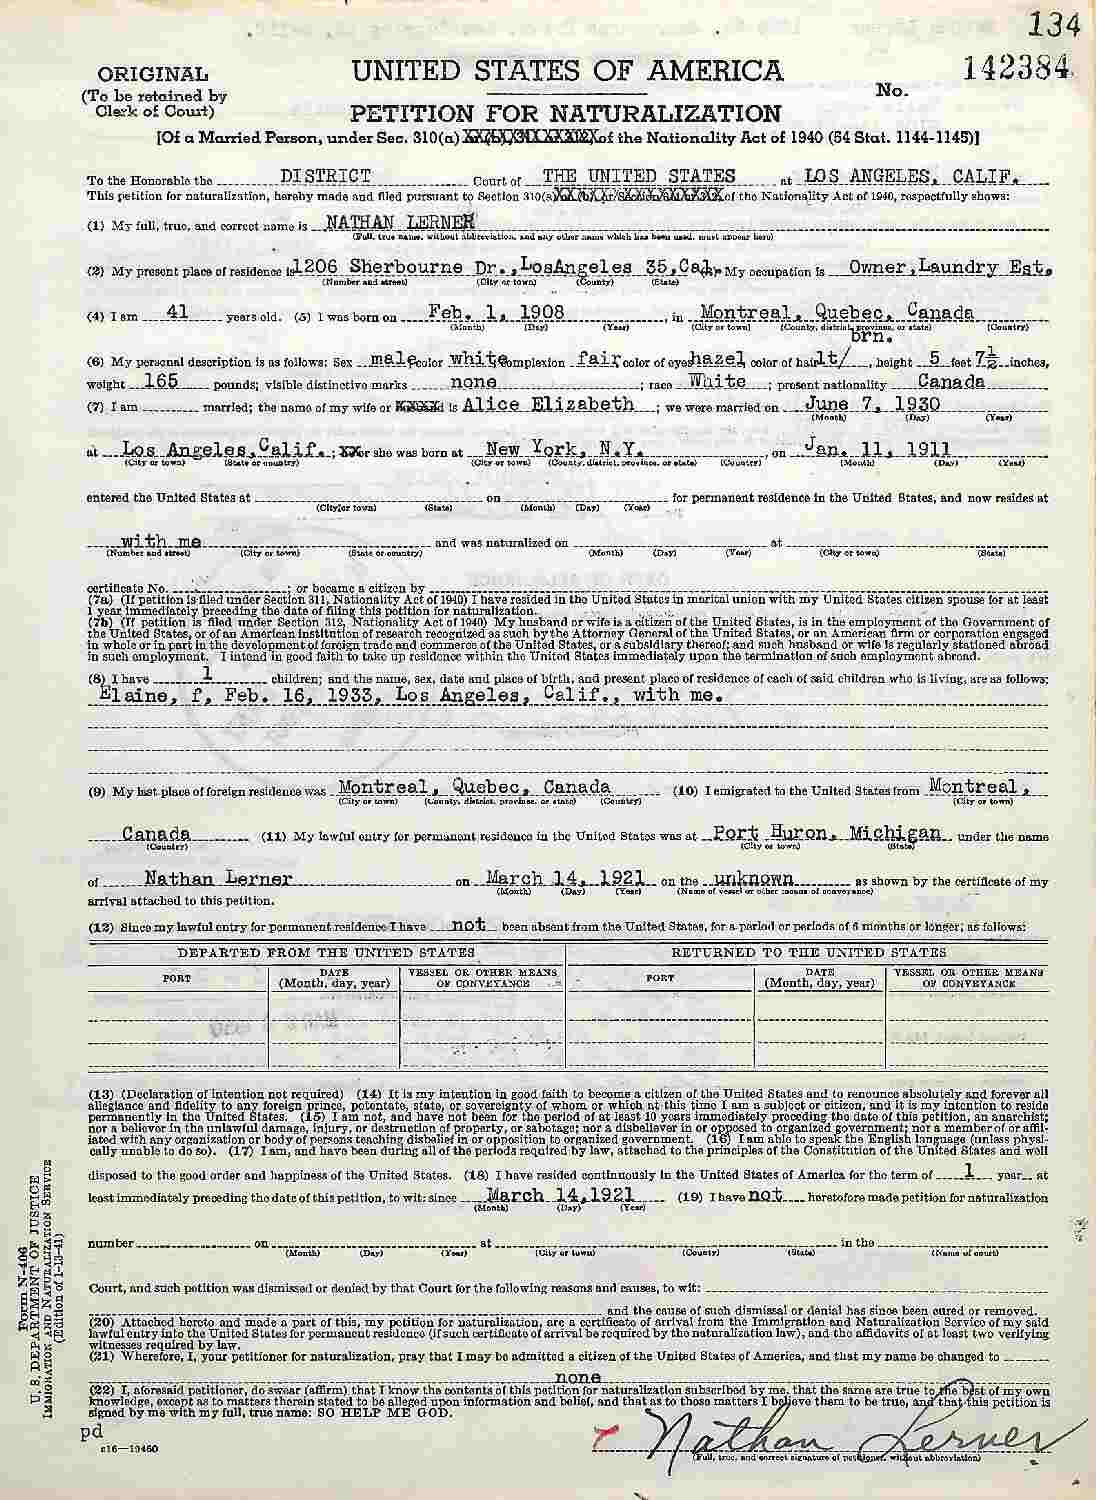 134
ORIGINAL
(To be retained by
Clerk of Court)
UNITED STATES OF AMERICA
No. 142384
PETITION FOR NATURALIZATION
[Of a Married Person, under Sec. 310(a) of the Nationality Act of 1940 (54 Stat. 1144-1145)]
To the Honorable the DISTRICT Court of THE UNITED STATES at LOS ANGELES, CALIF.
This petition for naturalization, hereby made and filed pursuant to Section 310(a) of the Nationality Act of 1940, respectfully shows:
(1) My full, true, and correct name is NATHAN LERNER
(Full, true name, without abbreviation, and any other name which has been used, must appear here)
(2) My present place of residence is 1206 Sherbourne Dr., LosAngeles 35, Cal. My occupation is Owner, Laundry Est.
(Number and street) (City or town) (County) (State)
(4) I am 41 years old. (5) I was born on Feb. 1, 1908, in Montreal, Quebec, Canada
(Month) (Day) (Year) (City or town) (County, district, province, or state) (Country)
brn.
(6) My personal description is as follows: Sex male, color white, complexion fair, color of eyes hazel, color of hair lt/, height 5 feet 7½ inches,
weight 165 pounds; visible distinctive marks none; race White; present nationality Canada
(7) I am married; the name of my wife or husband is Alice Elizabeth; we were married on June 7, 1930
(Month) (Day) (Year)
at Los Angeles, Calif.; XX or she was born at New York, N.Y., on Jan. 11, 1911
(City or town) (State or country) (City or town) (County, district, province, or state) (Country) (Month) (Day) (Year)
entered the United States at on for permanent residence in the United States, and now resides at
(City or town) (State) (Month) (Day) (Year)
with me and was naturalized on at
(Number and street) (City or town) (State or country) (Month) (Day) (Year) (City or town) (State)
certificate No. ; or became a citizen by
(7a) (If petition is filed under Section 311, Nationality Act of 1940) I have resided in the United States in marital union with my United States citizen spouse for at least
1 year immediately preceding the date of filing this petition for naturalization.
(7b) (If petition is filed under Section 312, Nationality Act of 1940) My husband or wife is a citizen of the United States, is in the employment of the Government of
the United States, or of an American institution of research recognized as such by the Attorney General of the United States, or an American firm or corporation engaged
in whole or in part in the development of foreign trade and commerce of the United States, or a subsidiary thereof; and such husband or wife is regularly stationed abroad
in such employment. I intend in good faith to take up residence within the United States immediately upon the termination of such employment abroad.
(8) I have 1 children; and the name, sex, date and place of birth, and present place of residence of each of said children who is living, are as follows:
Elaine, f, Feb. 16, 1933, Los Angeles, Calif., with me.
(9) My last place of foreign residence was Montreal, Quebec, Canada (10) I emigrated to the United States from Montreal,
(City or town) (County, district, province, or state) (Country) (City or town)
Canada (11) My lawful entry for permanent residence in the United States was at Port Huron, Michigan under the name
(Country) (City or town) (State)
of Nathan Lerner on March 14, 1921 on the unknown as shown by the certificate of my
(Month) (Day) (Year) (Name of vessel or other means of conveyance)
arrival attached to this petition.
(12) Since my lawful entry for permanent residence I have not been absent from the United States, for a period or periods of 6 months or longer, as follows:
DEPARTED FROM THE UNITED STATES RETURNED TO THE UNITED STATES
PORT DATE (Month, day, year) VESSEL OR OTHER MEANS OF CONVEYANCE PORT DATE (Month, day, year) VESSEL OR OTHER MEANS OF CONVEYANCE
(13) (Declaration of intention not required) (14) It is my intention in good faith to become a citizen of the United States and to renounce absolutely and forever all
allegiance and fidelity to any foreign prince, potentate, state, or sovereignty of whom or which at this time I am a subject or citizen, and it is my intention to reside
permanently in the United States. (15) I am not, and have not been for the period of at least 10 years immediately preceding the date of this petition, an anarchist;
nor a believer in the unlawful damage, injury, or destruction of property, or sabotage; nor a disbeliever in or opposed to organized government; nor a member of or affil-
iated with any organization or body of persons teaching disbelief in or opposition to organized government. (16) I am able to speak the English language (unless physi-
cally unable to do so). (17) I am, and have been during all of the periods required by law, attached to the principles of the Constitution of the United States and well
disposed to the good order and happiness of the United States. (18) I have resided continuously in the United States of America for the term of 1 year at
least immediately preceding the date of this petition, to wit: since March 14, 1921 (19) I have not heretofore made petition for naturalization
(Month) (Day) (Year)
number on at in the
(Month) (Day) (Year) (City or town) (County) (State) (Name of court)
Court, and such petition was dismissed or denied by that Court for the following reasons and causes, to wit:
and the cause of such dismissal or denial has since been cured or removed.
(20) Attached hereto and made a part of this, my petition for naturalization, are a certificate of arrival from the Immigration and Naturalization Service of my said
lawful entry into the United States for permanent residence (if such certificate of arrival be required by the naturalization law), and the affidavits of at least two verifying
witnesses required by law.
(21) Wherefore, I, your petitioner for naturalization, pray that I may be admitted a citizen of the United States of America, and that my name be changed to
none
(22) I, aforesaid petitioner, do swear (affirm) that I know the contents of this petition for naturalization subscribed by me, that the same are true to the best of my own
knowledge, except as to matters therein stated to be alleged upon information and belief, and that as to those matters I believe them to be true, and that this petition is
signed by me with my full, true name: SO HELP ME GOD.
pd
c16—19460
Nathan Lerner
(Full, true, and correct signature of petitioner, without abbreviation)
Form N-406
U. S. DEPARTMENT OF JUSTICE
IMMIGRATION AND NATURALIZATION SERVICE
(Edition of 1-13-41)